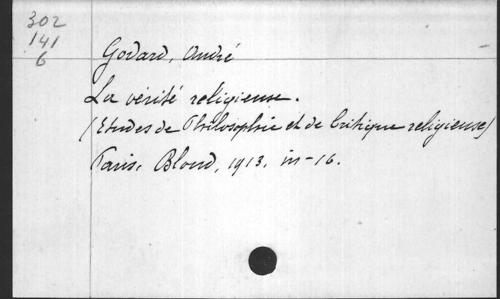 302
141
6
Godard, André
La vérité religieuse.
(Etudes de Philosophie et de Critique religieuse)
Paris, Bloud, 1913. in-16.